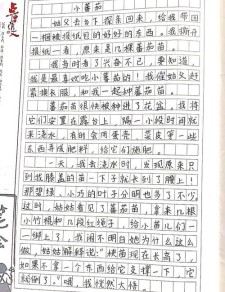 小蕃茄
姑父去乡下探亲回来，给我带回
一捆被报纸包的好好的东西。我撕开
报纸一看，原来是几棵番茄苗。
我当时看了兴奋不已，要知道，
我是最喜欢吃小蕃茄的！我催姑父赶
紧换衣服，和我一起种蕃茄苗。
蕃茄苗很快被种进了花盆，我将
它们安置在露台上，隔一小段时间就
来浇水，有时会用蛋壳、菜皮等一些
东西弄成肥料，给它们施肥。
一天，我去浇水时，发现原来只
到我膝盖的苗一下子就长到了腰上！
那碧绿、小巧的叶子分明也多了不少，
过时，姑姑看见了蕃茄苗，拿来几根
小竹棍和几段红绳子，给小苗们一
一绑上了，我闹不明白她为什么这么
做，姑姑解释说："秧苗现在长高了，
如果不拿一个东西给它支撑一下，它
就倒了。"哦，我恍然大悟。